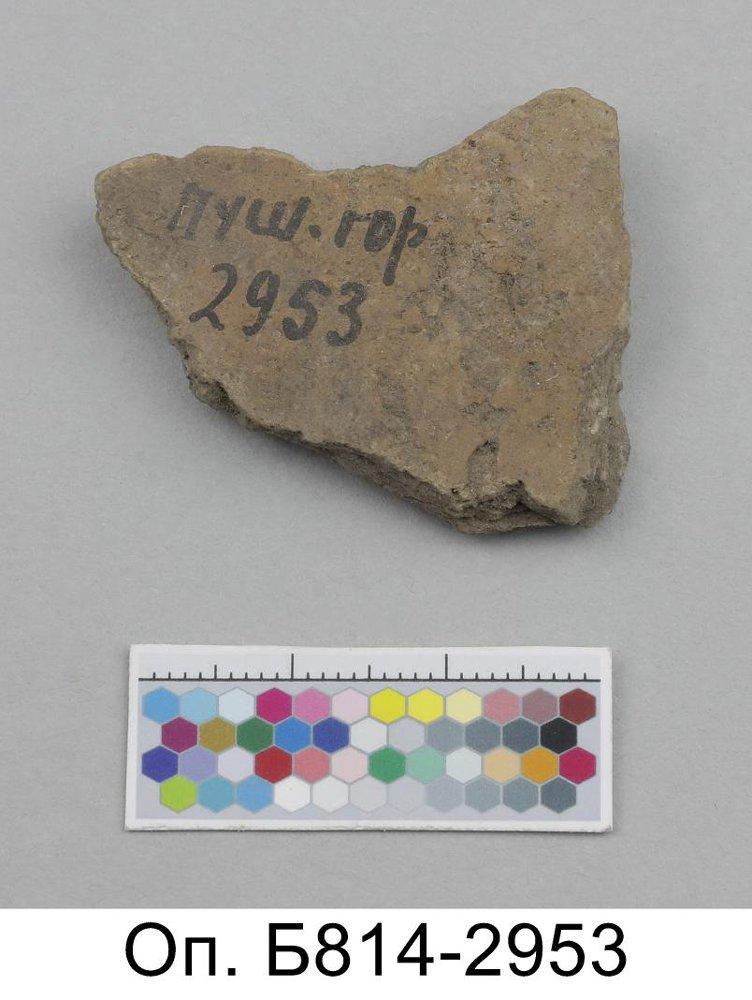 Пуш. гор
2953
Оп. Б814-2953